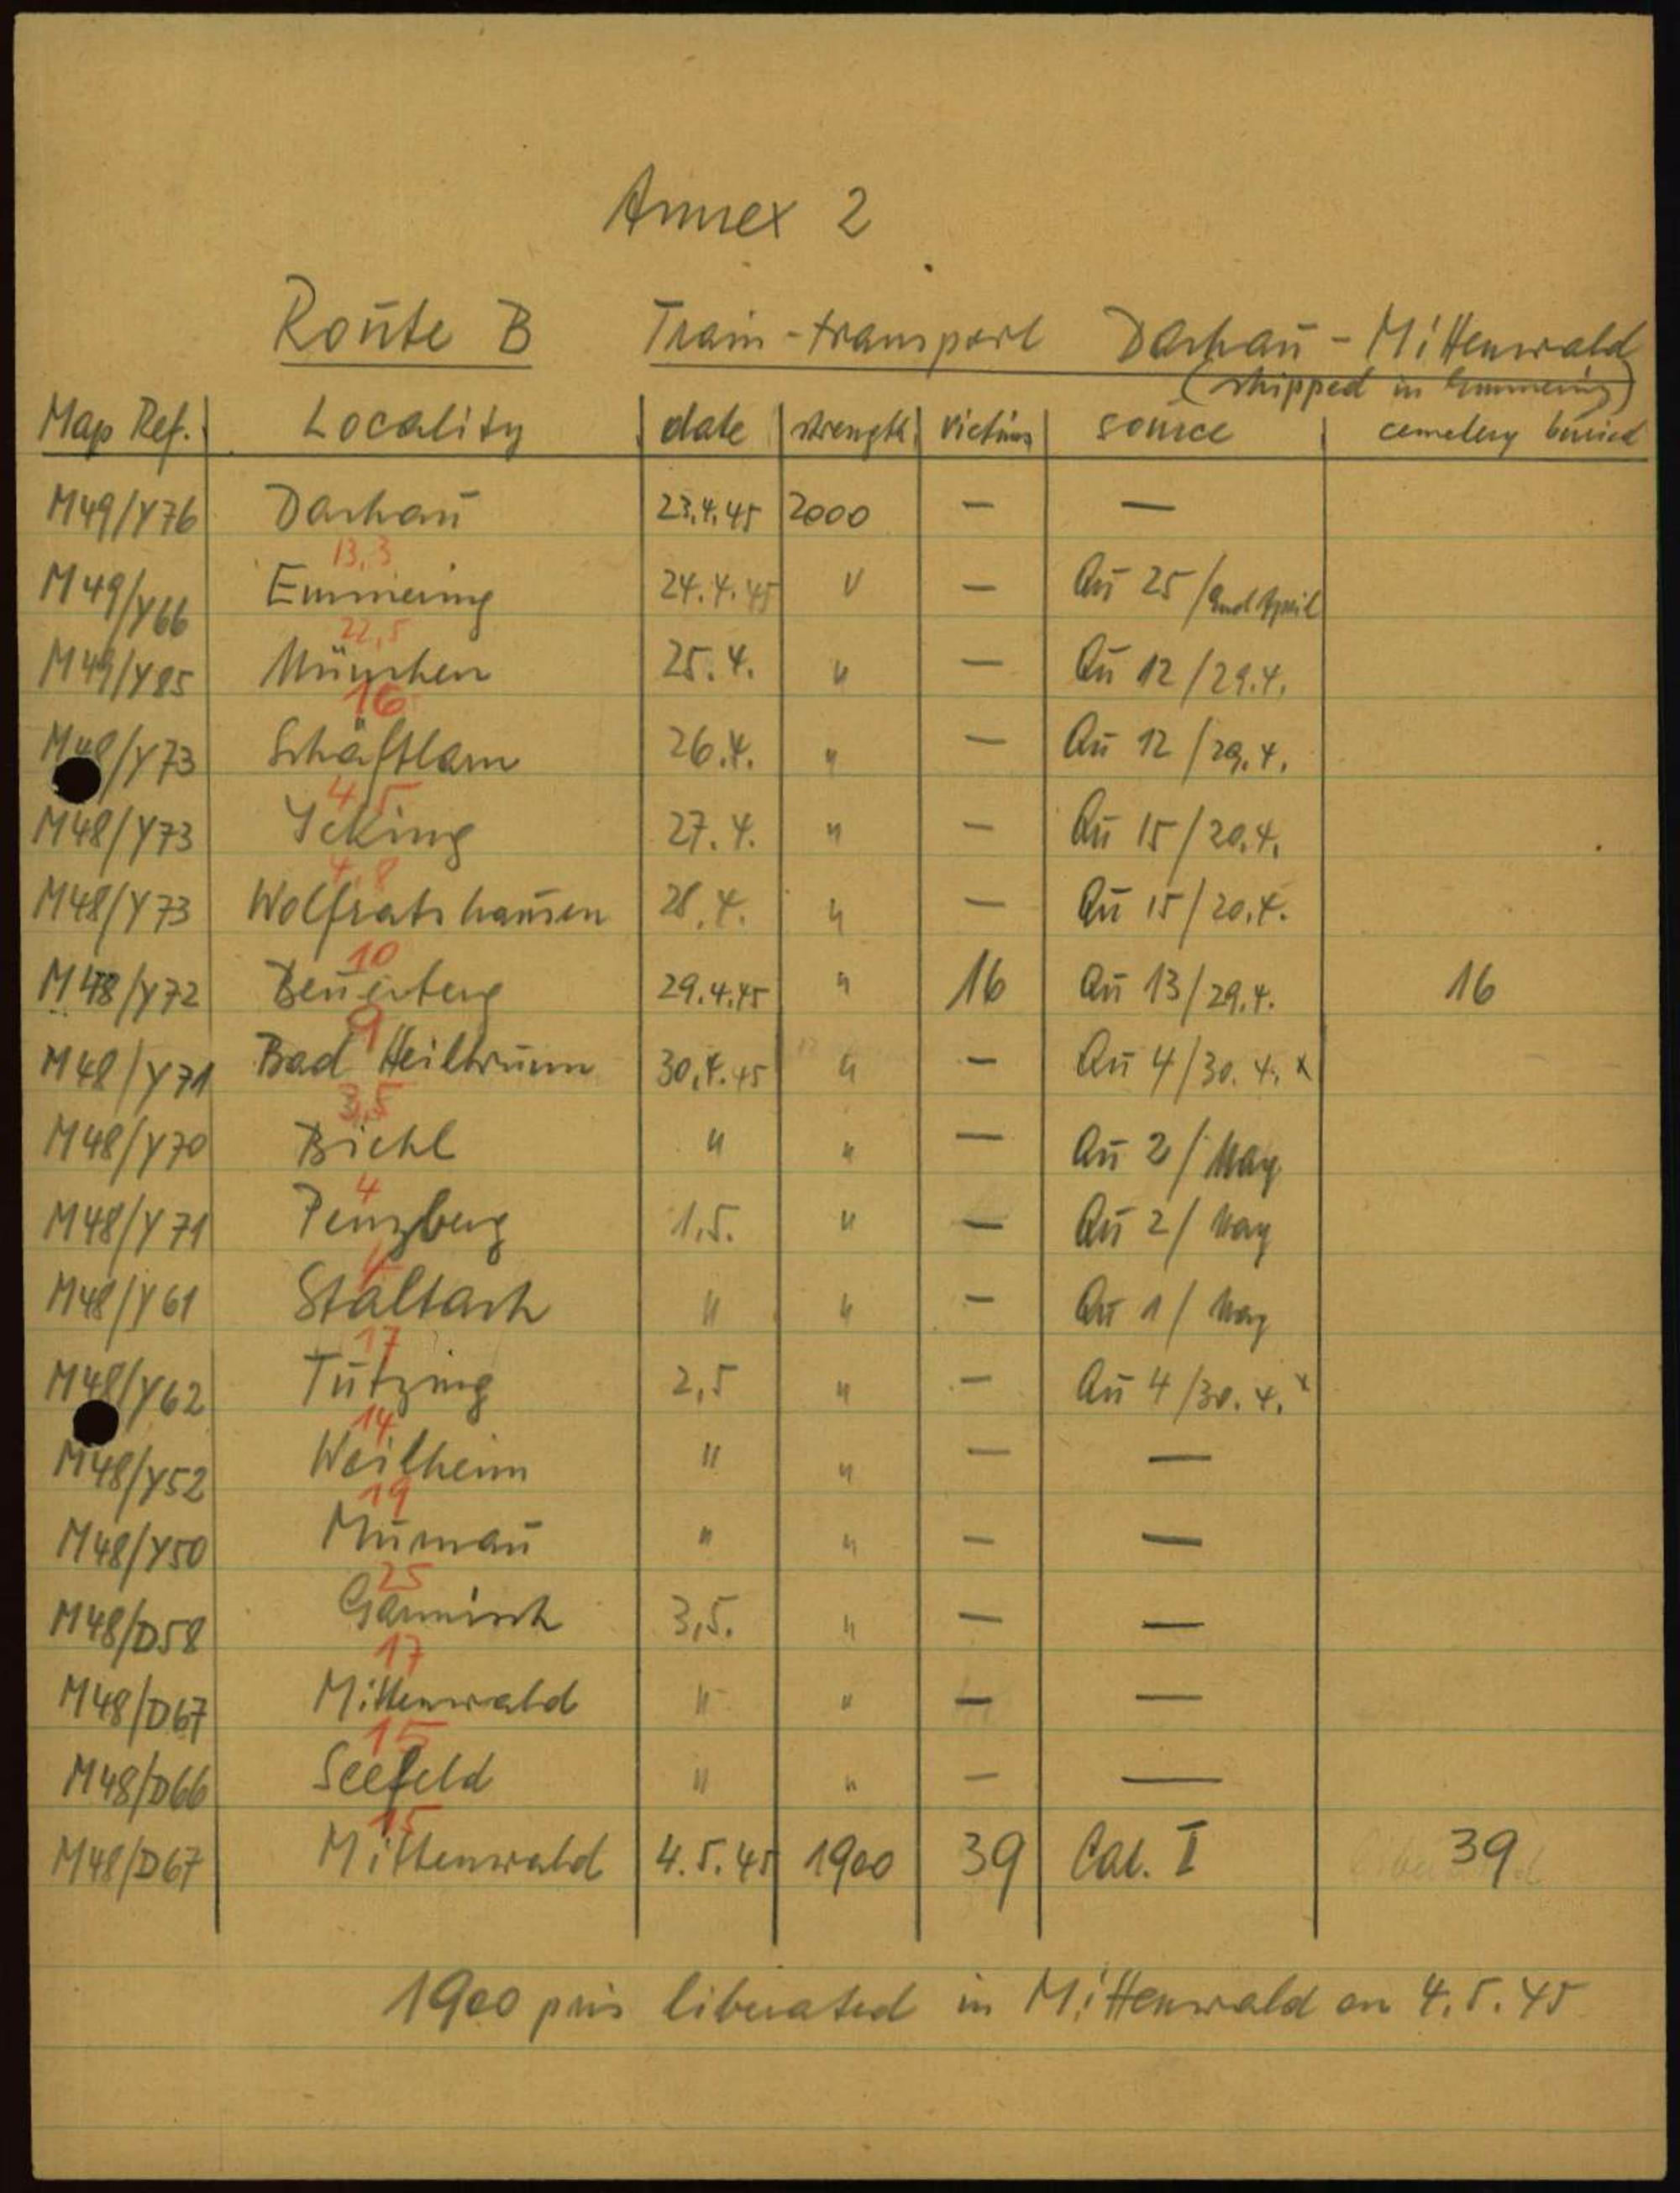 Annex 2
Route B Train-transport Dachau - Mittenwald
(shipped in Emmering)
Map Ref. Locality date strength victims source cemetery buried
M49/Y76 Dachau 23.4.45 2000 — —
13,3
M49/Y66 Emmering 24.4.45 v — Qu 25/End April
22,5
M49/Y85 München 25.4. " — Qu 12/29.4.
16
M48/Y73 Schäftlarn 26.4. " — Qu 12/29.4.
4,5
M48/Y73 Icking 27.4. " — Qu 15/20.4.
4,8
M48/Y73 Wolfratshausen 28.4. " — Qu 15/20.4.
10
M48/Y72 Beuerberg 29.4.45 " 16 Qu 13/29.4. 16
9
M48/Y71 Bad Heilbrunn 30.4.45 " — Qu 4/30.4. x
3,5
M48/Y70 Bichl " " — Qu 2/May
4
M48/Y71 Penzberg 1.5. " — Qu 2/May
4
M48/Y61 Staltach " " — Qu 1/May
17
M48/Y62 Tutzing 2,5 " — Qu 4/30.4. x
14
M48/Y52 Weilheim " " — —
19
M48/Y50 Murnau " " — —
25
M48/D58 Garmisch 3,5. " — —
17
M48/D67 Mittenwald " " — —
15
M48/D66 Seefeld " " — —
15
M48/D67 Mittenwald 4.5.45 1900 39 Cal. I 39
1900 pris liberated in Mittenwald on 4.5.45